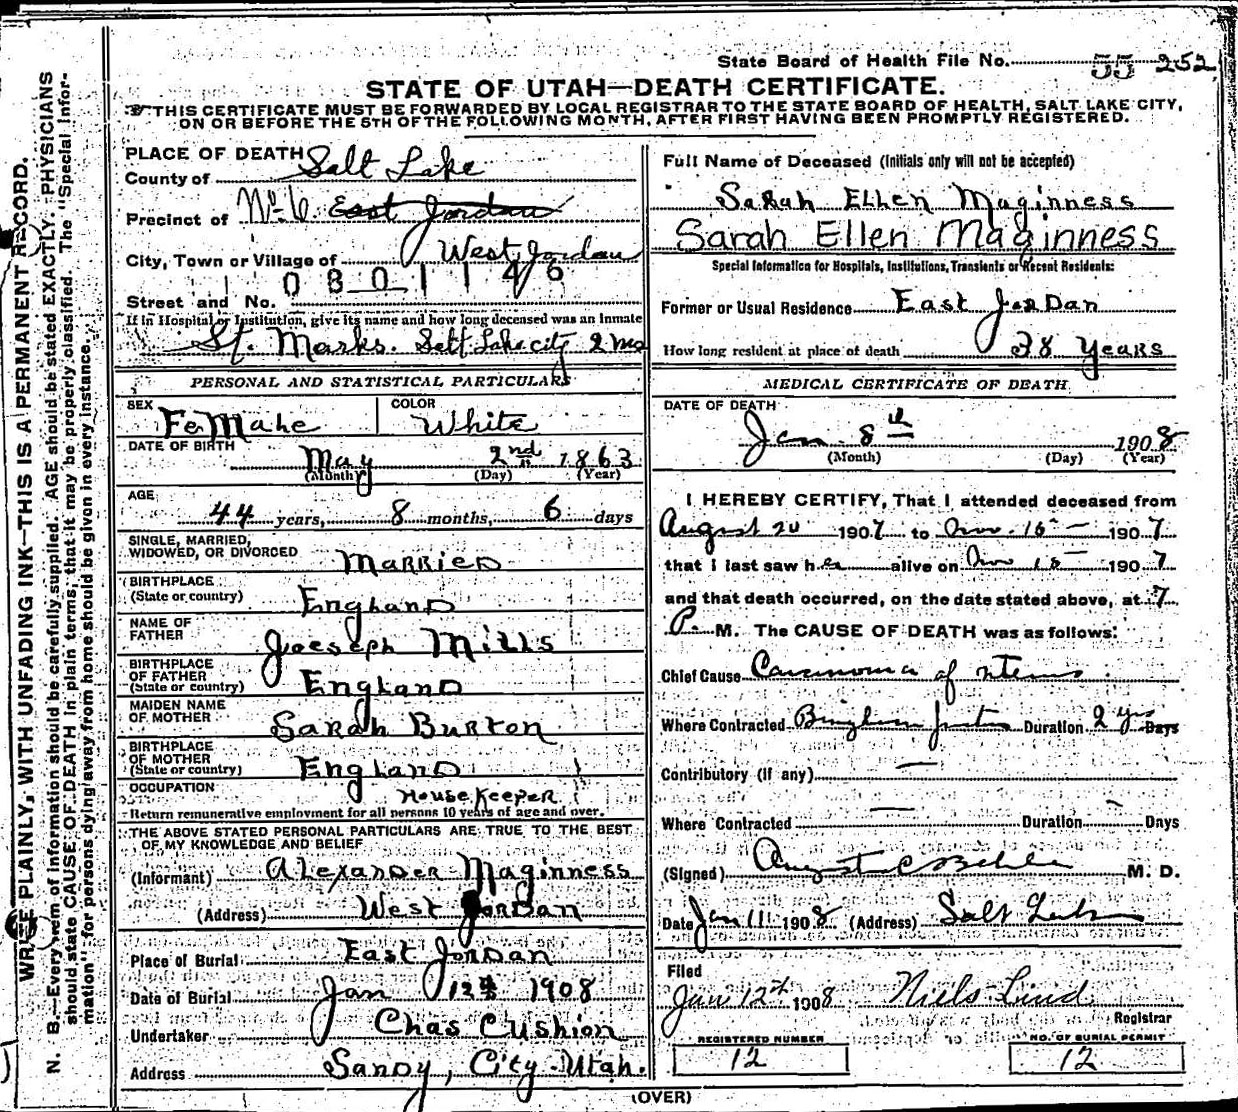 State Board of Health File No. 55 252
STATE OF UTAH—DEATH CERTIFICATE.
THIS CERTIFICATE MUST BE FORWARDED BY LOCAL REGISTRAR TO THE STATE BOARD OF HEALTH, SALT LAKE CITY,
ON OR BEFORE THE 5TH OF THE FOLLOWING MONTH, AFTER FIRST HAVING BEEN PROMPTLY REGISTERED.
WRITE PLAINLY, WITH UNFADING INK—THIS IS A PERMANENT RECORD.
N. B.—Every item of information should be carefully supplied. AGE should be stated EXACTLY. PHYSICIANS
should state CAUSE OF DEATH in plain terms, that it may be properly classified. The "Special Infor-
mation" for persons dying away from home should be given in every instance.
PLACE OF DEATH
County of Salt Lake
Precinct of No. 6 East Jordan
West Jordan
City, Town or Village of
0 8 0 1 1 4 6
Street and No.
If in Hospital or Institution, give its name and how long deceased was an inmate
St. Marks. Salt Lake city 2 mo
PERSONAL AND STATISTICAL PARTICULARS
SEX FeMale COLOR White
DATE OF BIRTH May 2nd 1863
(Month) (Day) (Year)
AGE
44 years, 8 months, 6 days
SINGLE, MARRIED,
WIDOWED, OR DIVORCED MARRIED
BIRTHPLACE
(State or country) England
NAME OF
FATHER Joeseph Mills
BIRTHPLACE
OF FATHER
(State or country) England
MAIDEN NAME
OF MOTHER Sarah Burton
BIRTHPLACE
OF MOTHER
(State or country) England
OCCUPATION HouseKeeper
Return remunerative employment for all persons 10 years of age and over.
THE ABOVE STATED PERSONAL PARTICULARS ARE TRUE TO THE BEST
OF MY KNOWLEDGE AND BELIEF
(Informant) Alexander Maginness
(Address) West Jordan
Place of Burial East Jordan
Date of Burial Jan 12th 1908
Undertaker Chas Cushion
Address Sandy, City Utah.
Full Name of Deceased (Initials only will not be accepted)
Sarah Ellen Maginness
Sarah Ellen Maginness
Special Information for Hospitals, Institutions, Transients or Recent Residents:
Former or Usual Residence East Jordan
How long resident at place of death 38 Years
MEDICAL CERTIFICATE OF DEATH
DATE OF DEATH
Jan 8th 1908
(Month) (Day) (Year)
I HEREBY CERTIFY, That I attended deceased from
August 20 1907 to Nov. 15 1907
that I last saw her alive on Nov 15 1907
and that death occurred, on the date stated above, at 7
P. M. The CAUSE OF DEATH was as follows:
Chief Cause Carcinoma of uterus
Where Contracted Bingham Junction Duration 2 yrs Days
Contributory (if any) —
Where Contracted — Duration Days
(Signed) August C Behle M. D.
Date Jan 11 1908 (Address) Salt Lake
Filed
Jan 12th 1908 Niels Lind
Registrar
REGISTERED NUMBER
12
NO. OF BURIAL PERMIT
12
(OVER)